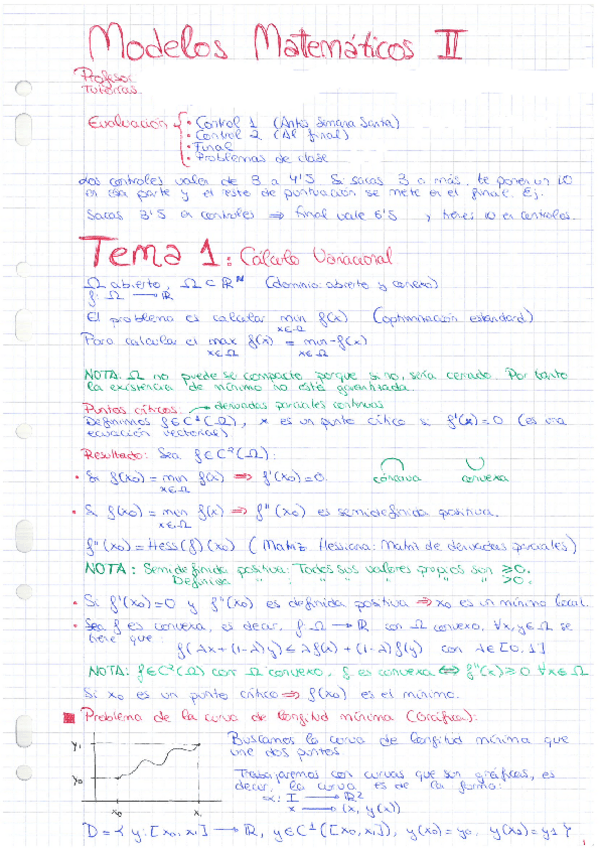 Modelos Matemáticos II
Profesor
Tutorías
Evaluación { • Control 1 (Antes Semana Santa)
• Control 2 (Al final)
• Final
• Problemas de clase
Los controles valen de 3 a 4'5 Si sacas 3 o más, te ponen un 10
en esa parte y el resto de puntuación se mete en el final. Ej:
Sacas 3'5 en controles ⇒ final vale 6'5 , tienes 10 en controles.
Tema 1: Cálculo Variacional
Ω abierto, Ω ⊂ ℝᴺ (dominio: abierto y conexo)
f: Ω → ℝ
El problema es calcular min f(x) (optimización estándar)
x∈Ω
Para calcular el max f(x) = min -f(x)
x∈Ω x∈Ω
NOTA: Ω no puede se compacto porque si no, sería cerrado. Por tanto
la existencia de mínimo no está garantizada.
Puntos críticos → derivadas parciales continuas
Definimos f∈C¹(Ω), x es un punto crítico si f'(x)=0 (es una
ecuación vectorial)
Resultado: Sea f∈C²(Ω):
• Si f(x₀) = min f(x) ⇒ f'(x₀)=0.
x∈Ω
cóncava convexa
• Si f(x₀) = min f(x) ⇒ f''(x₀) es semidefinida positiva.
x∈Ω
f''(x₀) = Hess(f)(x₀) (Matriz Hessiana: Matriz de derivadas parciales)
NOTA: Semidefinida positiva: Todos sus valores propios son ≥0.
Definida " " " " " " >0.
• Si f'(x₀)=0 y f''(x₀) es definida positiva ⇒ x₀ es un mínimo local.
• Sea f es convexa, es decir, f: Ω → ℝ con Ω convexo, ∀x,y∈Ω se
tiene que:
f(λx + (1-λ)y) ≤ λf(x) + (1-λ)f(y) con λ∈[0,1]
NOTA: f∈C²(Ω) con Ω convexo, f es convexa ⇔ f''(x)≥0 ∀x∈Ω
Si x₀ es un punto crítico ⇒ f(x₀) es el mínimo.
Problema de la curva de longitud mínima (Gráfica):
y₁
y₀
x₀ x₁
Buscamos la curva de longitud mínima que
une dos puntos
Trabajaremos con curvas que son gráficas, es
decir, la curva es de la forma:
α: I → ℝ²
x → (x, y(x))
D = { y: [x₀, x₁] → ℝ, y∈C¹([x₀, x₁]), y(x₀)=y₀, y(x₁)=y₁ }
1